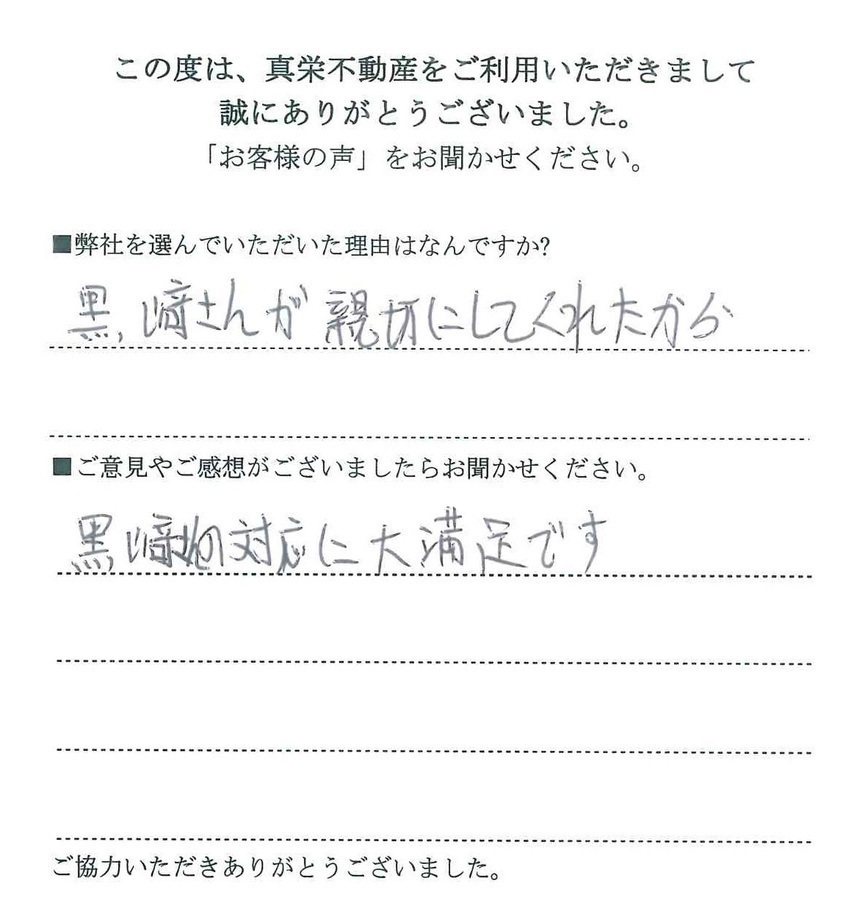 この度は、真栄不動産をご利用いただきまして
誠にありがとうございました。
「お客様の声」をお聞かせください。
■弊社を選んでいただいた理由はなんですか?
黒﨑さんが親切にしてくれたから
■ご意見やご感想がございましたらお聞かせください。
黒﨑さんの対応に大満足です
ご協力いただきありがとうございました。